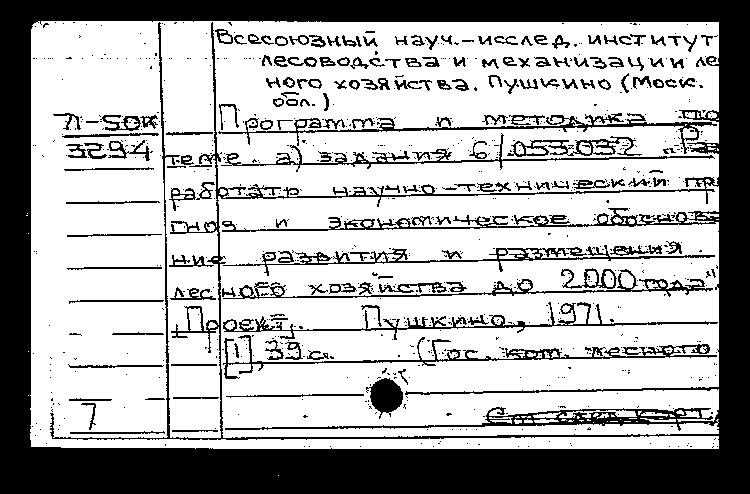 Всесоюзный науч.-исслед. институт
лесоводства и механизации ле
ного хозяйства. Пушкино (Моск.
обл.)
Л-50к
Программа и методика по
3294
теме а) задания 6/053.032 "Раз
работать научно-технический про
гноз и экономическое обоснова
ние развития и размещения
лесного хозяйства до 2000 года"
[Проект]. Пушкино, 1971.
[1], 39 с. (Гос. ком. лесного
7
См след карт.